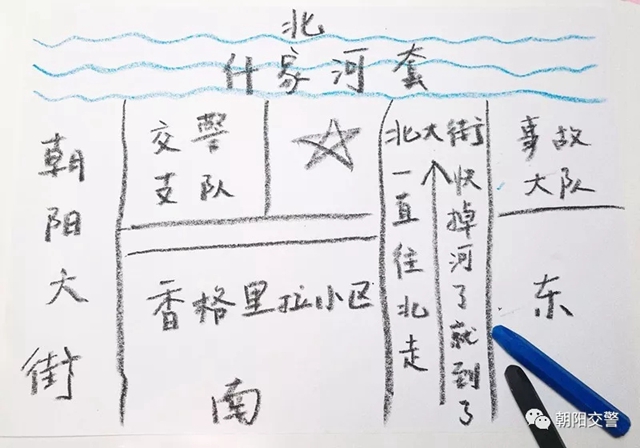 北
什家河套
朝阳大街
交警
支队
北大街
一直往北走
快掉河了就到了
事故
大队
香格里拉小区
东
南
朝阳交警